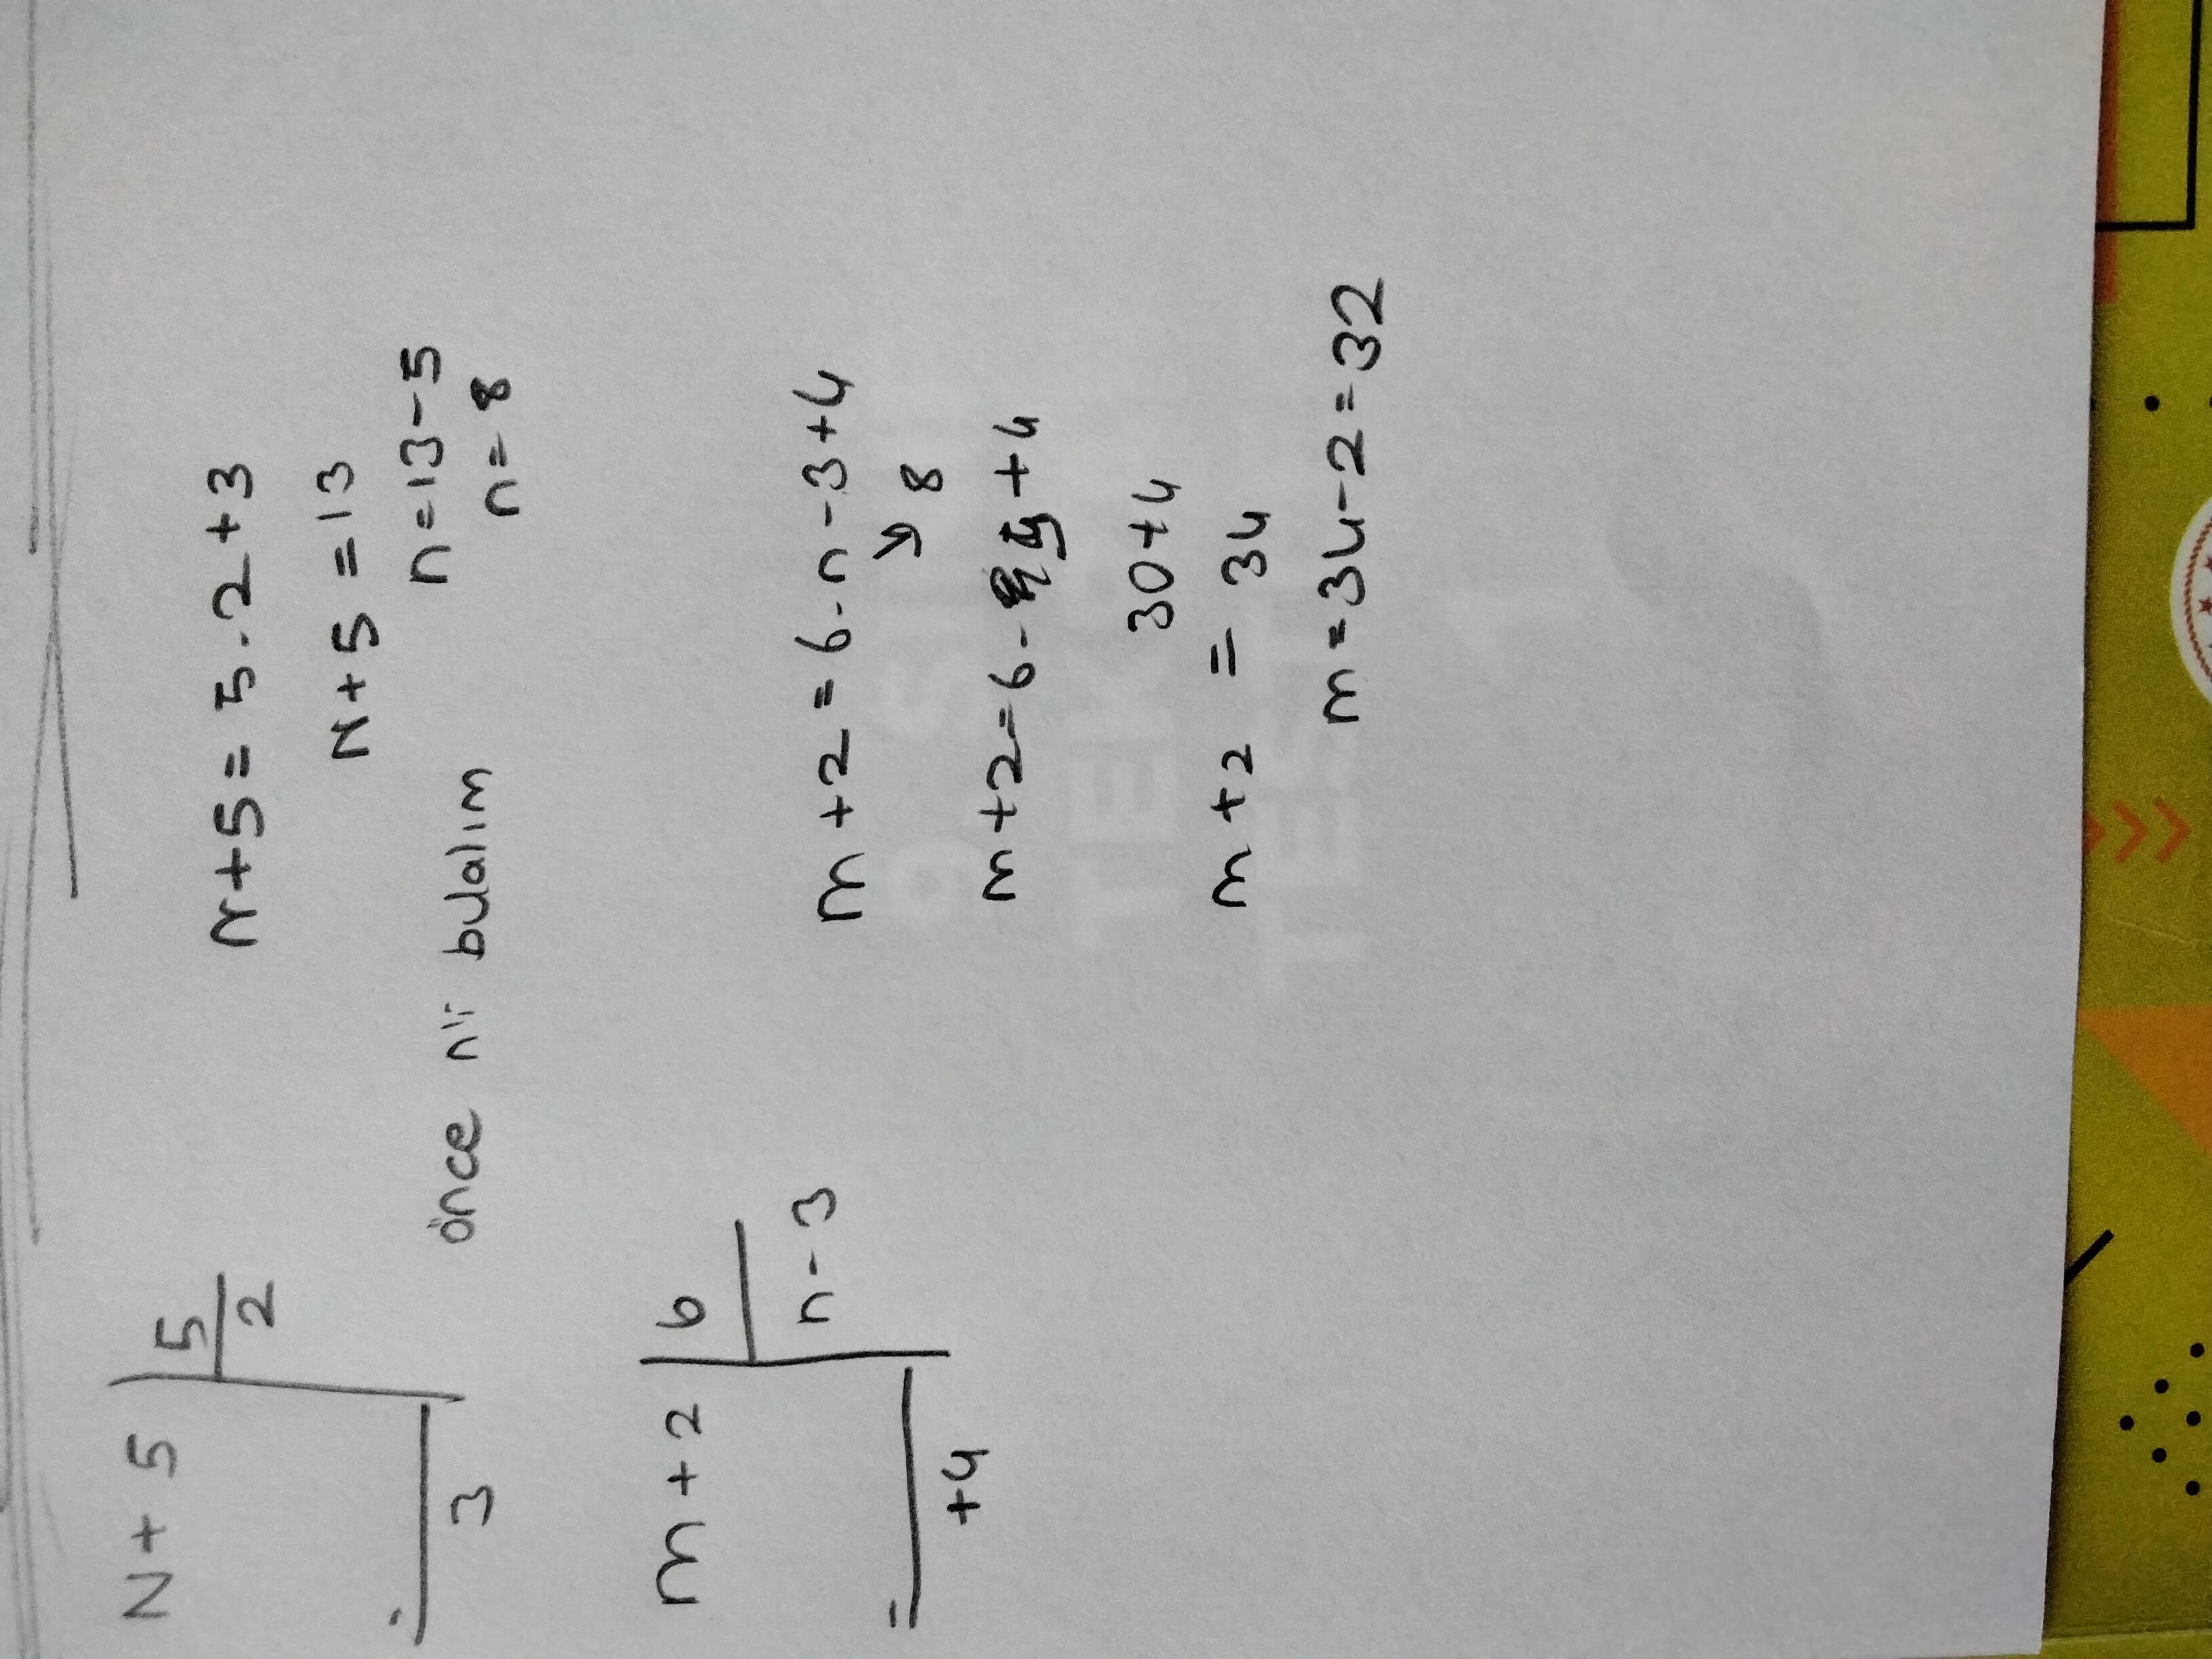 N + 5 5
2
3
n+5 = 5.2+3
N+5 = 13
n=13-5
n=8
önce n'i bulalım
m + 2 6
n-3
+4
m+2 = 6.n-3+4
↳ 8
m+2=6. 5 +4
30+4
m+2 = 34
m=34-2=32